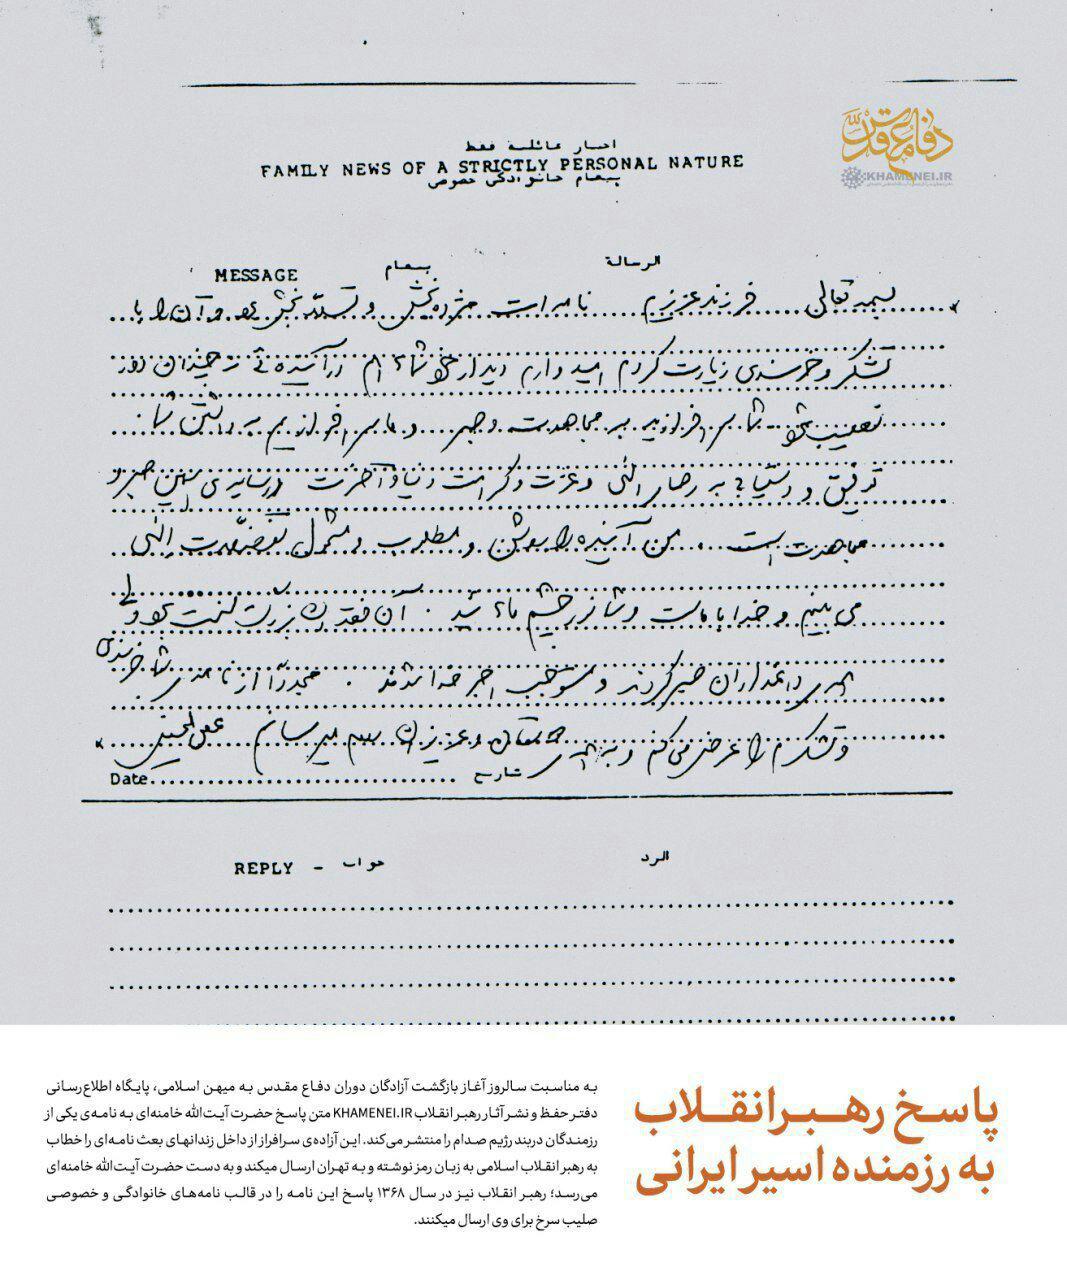 دفاع مقدس
KHAMENEI.IR
اخبار عائلية فقط
FAMILY NEWS OF A STRICTLY PERSONAL NATURE
پیغام خانوادگی خصوصی
الرسالة پیغام MESSAGE
بسمه تعالی فرزند عزیزم نامه‌ات مژده بخش و تسلّا بخش بود و آن را با
تشکر و خرسندی زیارت کردم امیدوارم دیدار خود شما هم در آینده‌ئی نه چندان دور
نصیب شود شما سرافرازید به مجاهدت و صبر و ما سرافرازیم به داشتن شما
توفیق و دستیابی به رضای الهی و عزت و کرامت دنیا و آخرت در سایه‌ی همین صبر و
مجاهدت است من آینده را روشن و مطلوب و مشمول تفضّلات الهی
می بینم و خدا با ماست و شما نور چشم مائید آن فقدان بزرگ سخت بود ولی
همه‌ی داغداران صبر کردند و مستوجب اجر خدا شدند مجدداً از نامه‌ی شما خرسندی
و تشکرم را عرض می‌کنم و به همه‌ی و عزیزان سلام میرسانم علی الحسینی
تاریخ Date
الرد جواب - REPLY
پاسخ رهبر انقلاب
به رزمنده اسیر ایرانی
به مناسبت سالروز آغاز بازگشت آزادگان دوران دفاع مقدس به میهن اسلامی، پایگاه اطلاع‌رسانی
دفتر حفظ و نشر آثار رهبر انقلاب KHAMENEI.IR متن پاسخ حضرت آیت‌الله خامنه‌ای به نامه‌ی یکی از
رزمندگان دربند رژیم صدام را منتشر می‌کند. این آزاده‌ی سرافراز از داخل زندانهای بعث نامه‌ای را خطاب
به رهبر انقلاب اسلامی به زبان رمز نوشته و به تهران ارسال میکند و به دست حضرت آیت‌الله خامنه‌ای
می‌رسد؛ رهبر انقلاب نیز در سال ۱۳۶۸ پاسخ این نامه را در قالب نامه‌های خانوادگی و خصوصی
صلیب سرخ برای وی ارسال میکنند.